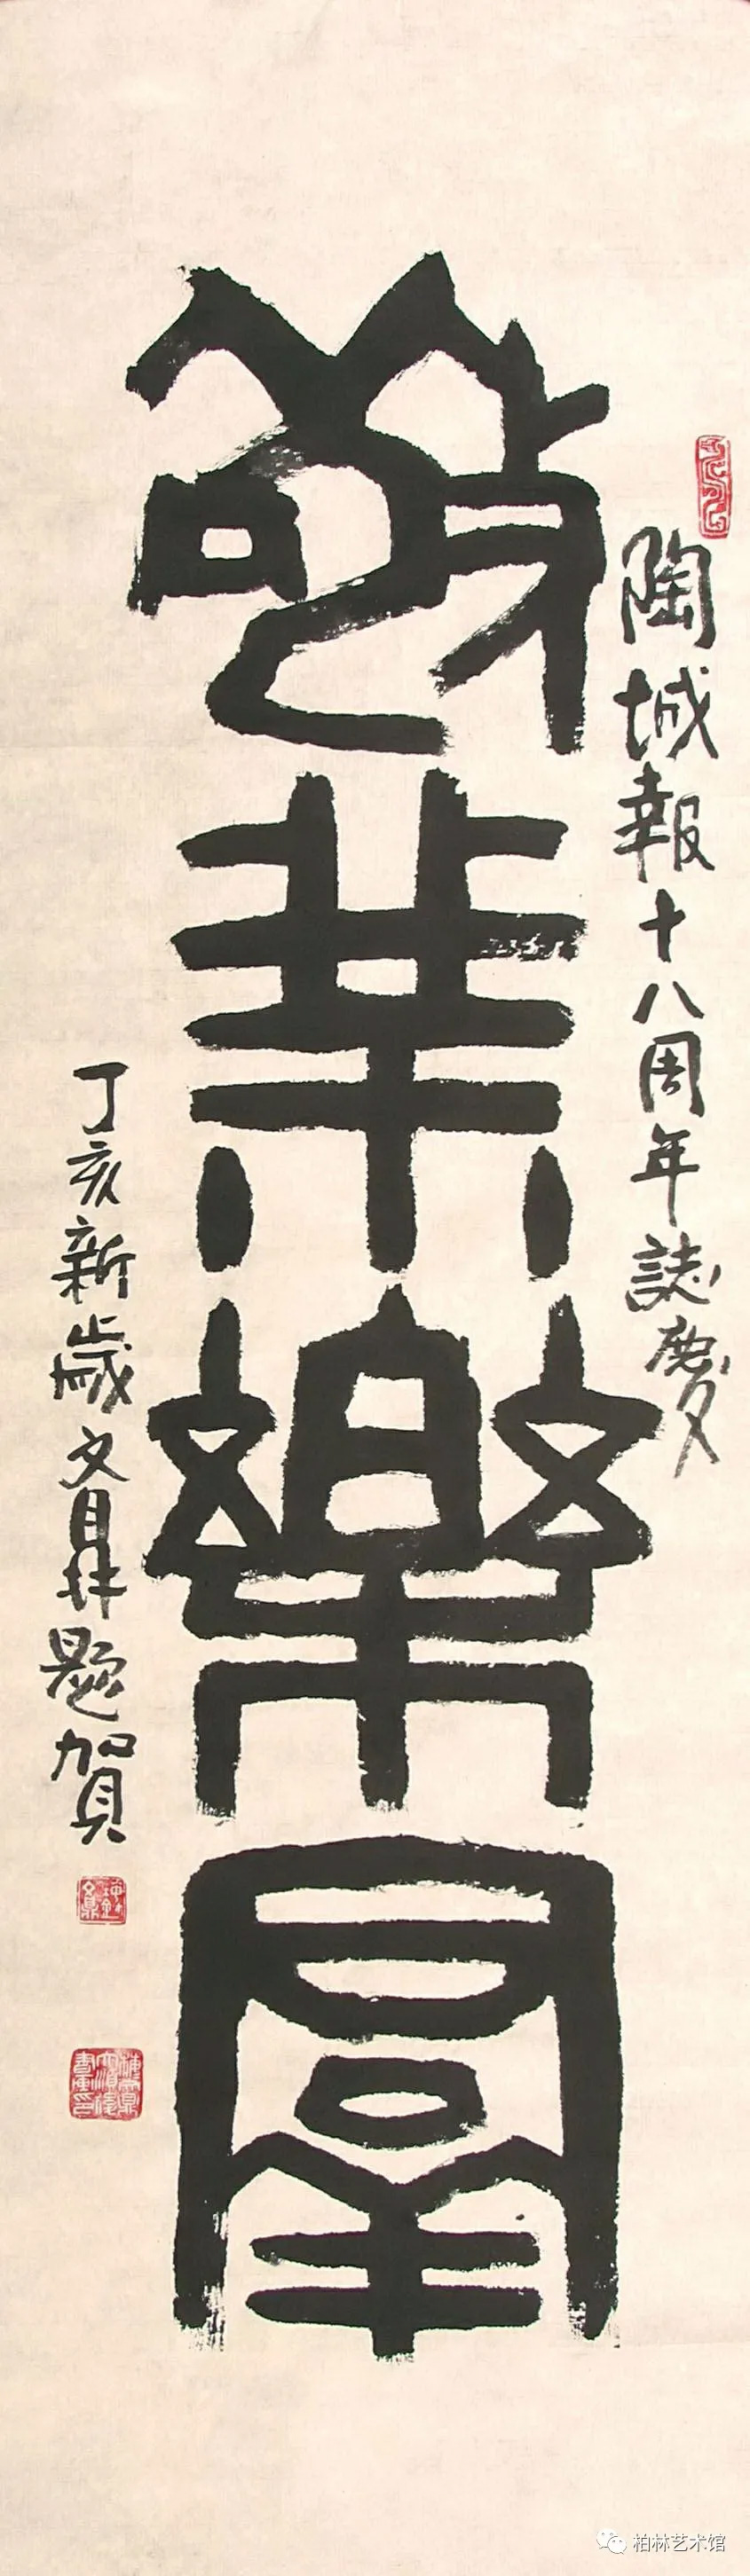 陶城報十八周年誌慶
敬業樂羣
丁亥新歲文鼎題賀
柏林艺术馆